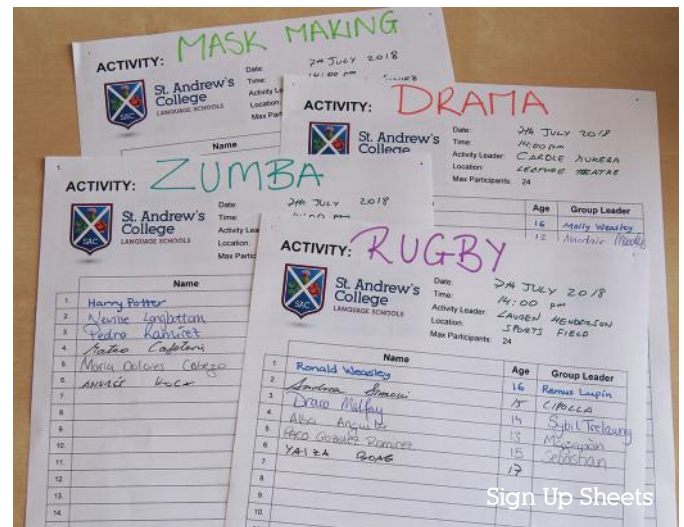 ACTIVITY: MASK MAKING
St. Andrew's
College
LANGUAGE SCHOOLS
Date: 7th JULY 2018
Time: 14:00 pm
Activity Le
Location:
Max Part
Name
ACTIVITY: DRAMA
St. Andrew's
College
Date: 7th JULY 2018
Time: 14:00 pm
Activity Leader:
Location: LECTURE THEATRE
Max Participants: 24
Age Group Leader
16 Molly Weasley
13
1.
ACTIVITY: ZUMBA
St. Andrew's
College
LANGUAGE SCHOOLS
SAC
Date: 7th JULY 2018
Time:
Activity Lea
Location:
Max Partic
Name
1. Harry Potter
2. Neville Longbottom
3. Pedro Ramirez
4. Mateo Cafetera
5. Maria Dolores Cabeza
6. ANDRÉS
7.
8.
9.
10.
11.
12.
13.
14.
ACTIVITY: RUGBY
St. Andrew's
College
LANGUAGE SCHOOLS
SAC
Date: 7th JULY 2018
Time: 14:00 pm
Activity Leader: LAUREN HENDERSON
Location: SPORTS FIELD
Max Participants: 24
Name Age Group Leader
1. Ronald Weasley 16 Remus Lupin
2. Andrea Simoni 15 CIPOLLA
3. Draco Malfoy 14 Sybil Trelawny
4. Alba Angulo 13
5. PACO 15 Sebastian
6. YAIZA 17
7.
8.
9.
10.
Sign Up Sheets